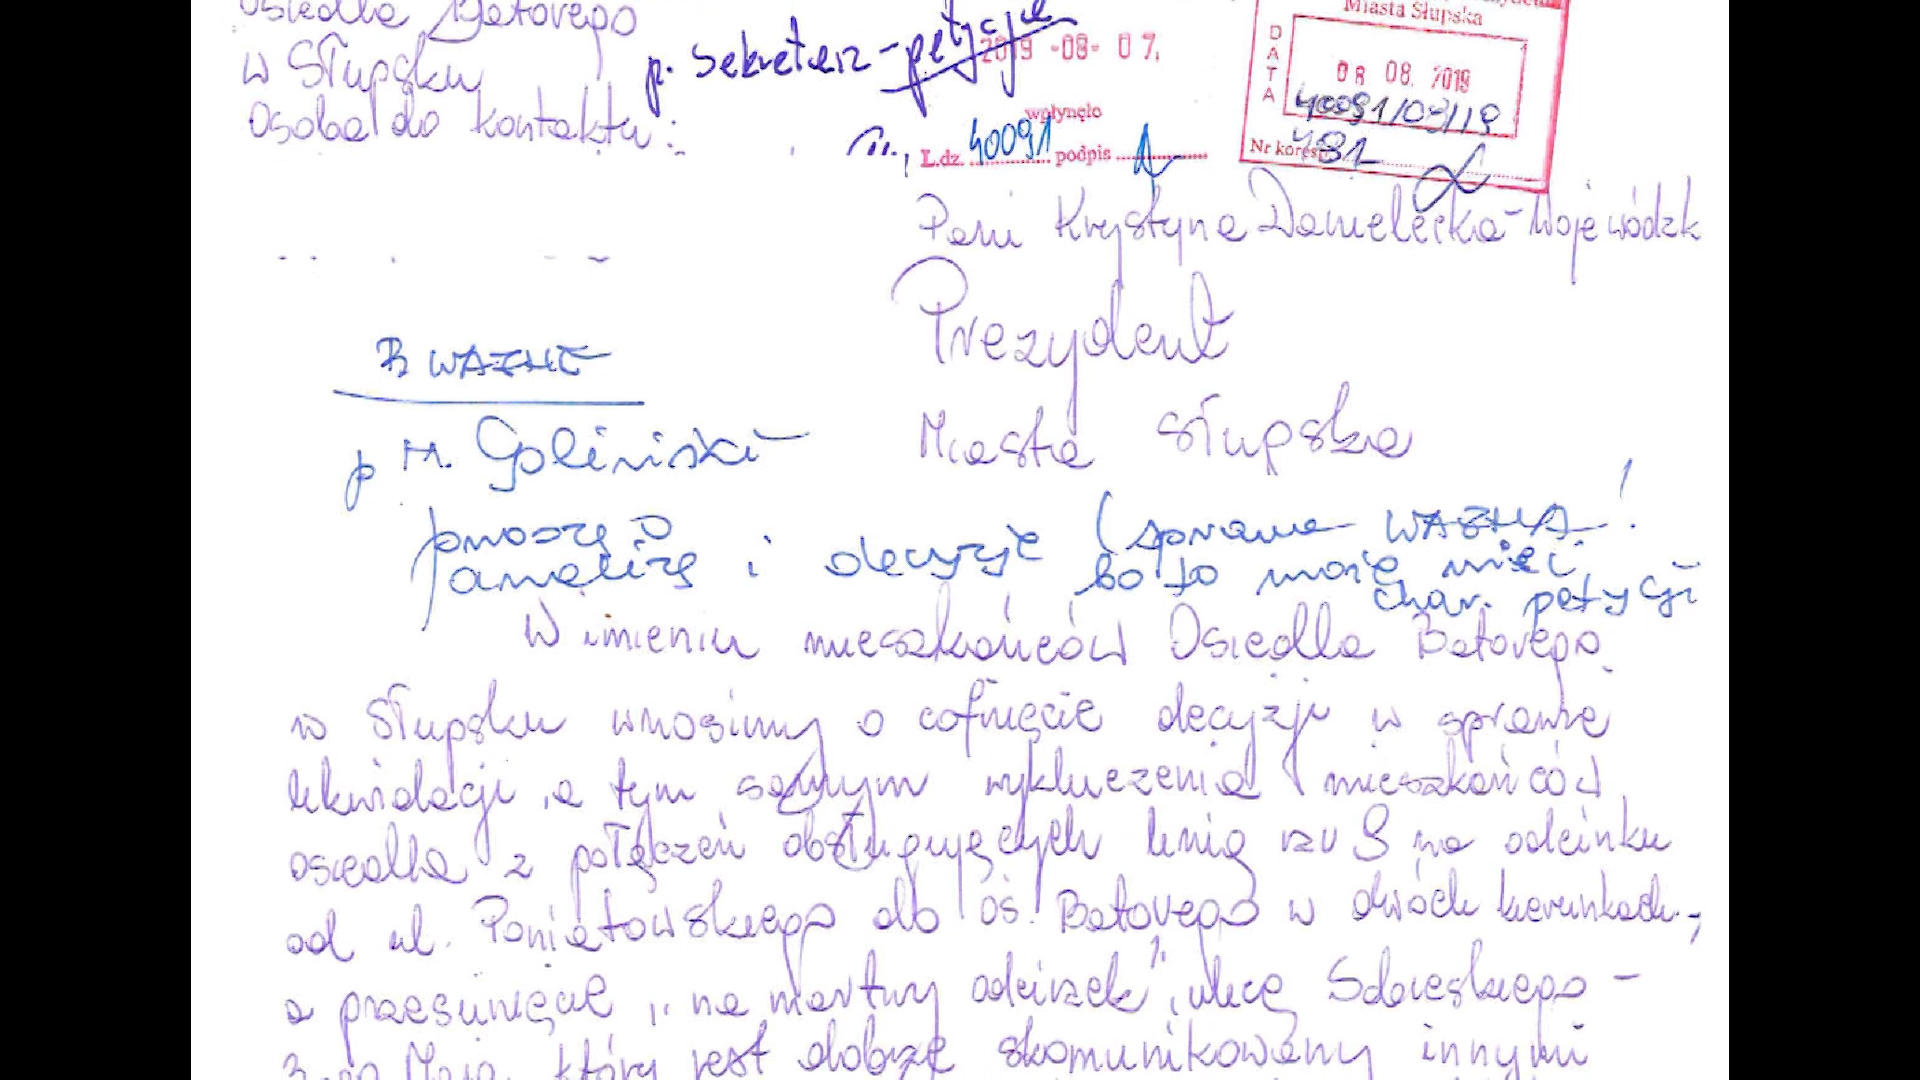 Osiedla Batorego
w Słupsku
Osoba do kontaktu:
p. Sekretarz - petycje
2019 -08- 07.
wpłynęło
L.dz. 40091 podpis
Miasta Słupska
DATA
08 08. 2019
40091/08/19
Nr koresp. 481
Pani Krystyna Danilecka-Wojewódzk
Prezydent
Miasta Słupska
B WAŻNE
p M. Goliński
proszę o
analizę i decyzję (sprawa WAŻNA!
bo to może mieć
char. petycji
W imieniu mieszkańców Osiedla Batorego
w Słupsku wnosimy o cofnięcie decyzji w sprawie
likwidacji, a tym samym wykluczenia mieszkańców
osiedla z połączeń obsługujących linią nr 9 na odcinku
od ul. Poniatowskiego do os. Batorego w dwóch kierunkach,
a przesunięcie "na martwy odcinek", ulicę Sobieskiego -
3-go Maja, który jest dobrze skomunikowany innymi